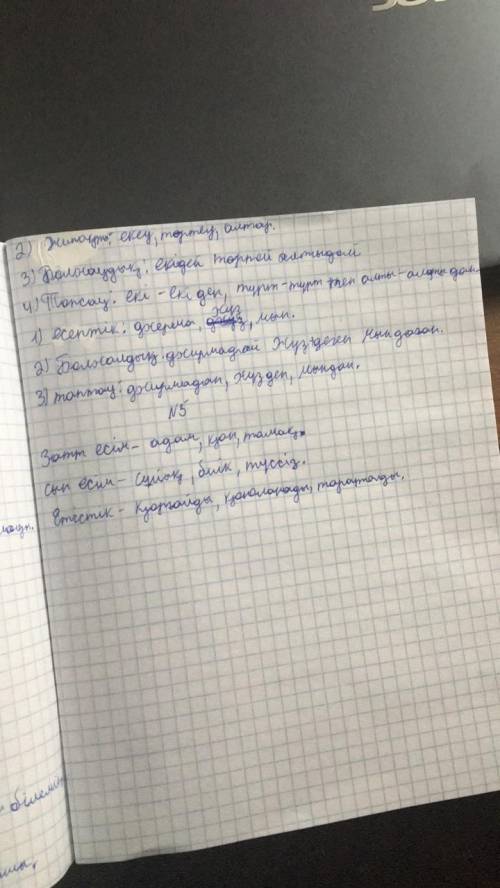 2) Жинақтық: екеу, төртеу, алтау.
3) Болжалдық: екідей төрттей алтыдай
4) Топтау: екі-екіден, төрт-төрттен алты-алтыдан.
1) есептік: джерма, жүз, мың.
2) Болжалдық: джирмадай жүздеген мыңдаған.
3) топтау: джирмадан, жүзден, мыңдан.
N5
Зат есім - адам, қан, тамақ.
Сын есім - сұйық, биік, түссіз.
Етістік - қартайды, қоюланады, таратады.
білемін